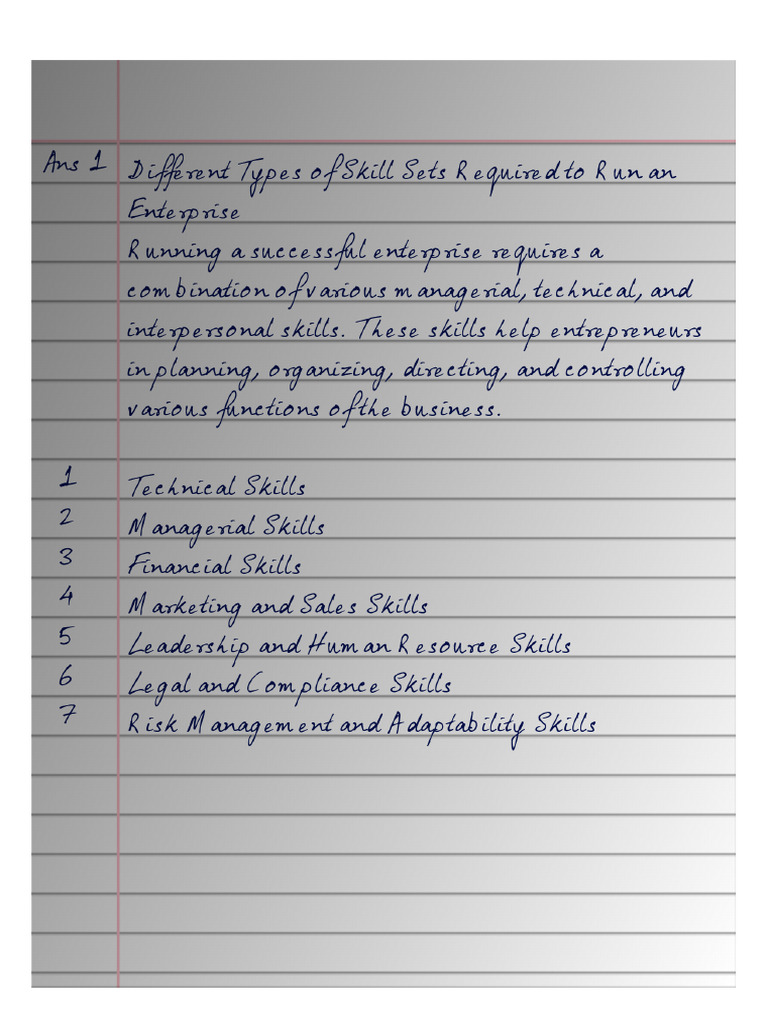 Ans 1 Different Types of Skill Sets Required to Run an
Enterprise
Running a successful enterprise requires a
combination of various managerial, technical, and
interpersonal skills. These skills help entrepreneurs
in planning, organizing, directing, and controlling
various functions of the business.
1 Technical Skills
2 Managerial Skills
3 Financial Skills
4 Marketing and Sales Skills
5 Leadership and Human Resource Skills
6 Legal and Compliance Skills
7 Risk Management and Adaptability Skills